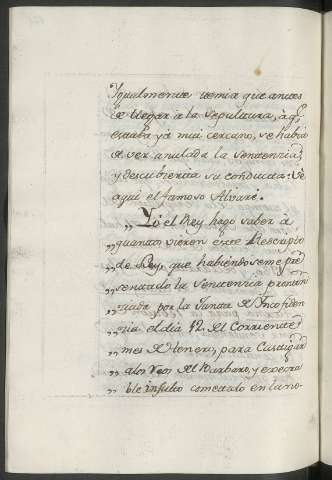 Igualmente temia que antes
de llegar a la Sepultura, a qe
estaba yá mui cercano, se habia
de ver anulada la Sentencia,
y descubierta su conducta: Ve
aqui el famoso Alvari.
„ Yó el Rey hago saber á
„ quantos vieren este Rescripto
„ de Rey, que habiendoseme pre
„ sentado la Sentencia pronun
„ ciada por la Junta de Inconfiden
„ cia el dia 12. del Corriente
„ mes de Henero, para Castigar
„ a los reos del barbaro, y execra
„ ble insulto cometido en la no